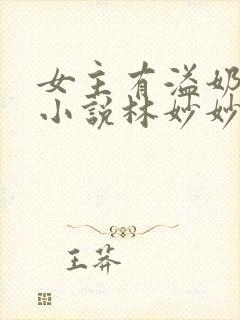 女主有溢奶
小说林妙妙
王莽